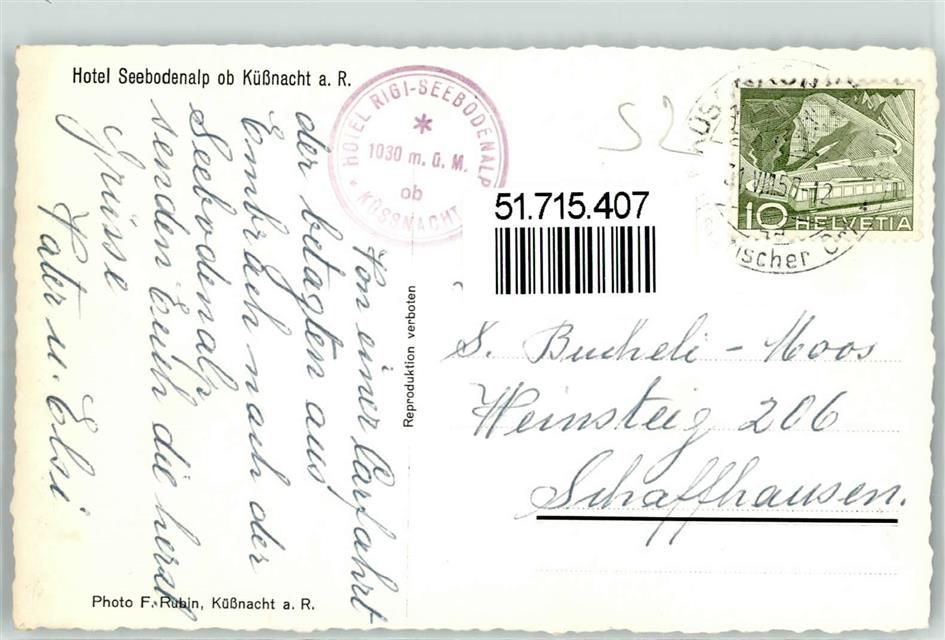 Hotel Seebodenalp ob Küßnacht a. R.
HOTEL RIGI-SEEBODENALP
1030 m. ü. M.
ob
KÜSSNACHT
52
10 HELVETIA
VIII 50 12
51.715.407
Von einer Carfahrt
der betagten aus
Embrach nach der
Seebodenalp
senden Euch die herzl
Grüsse
Vater u. Elsi
Reproduktion verboten
S. Bucheli - Moos
Weinsteig 206
Schaffhausen.
Photo F. Rubin, Küßnacht a. R.